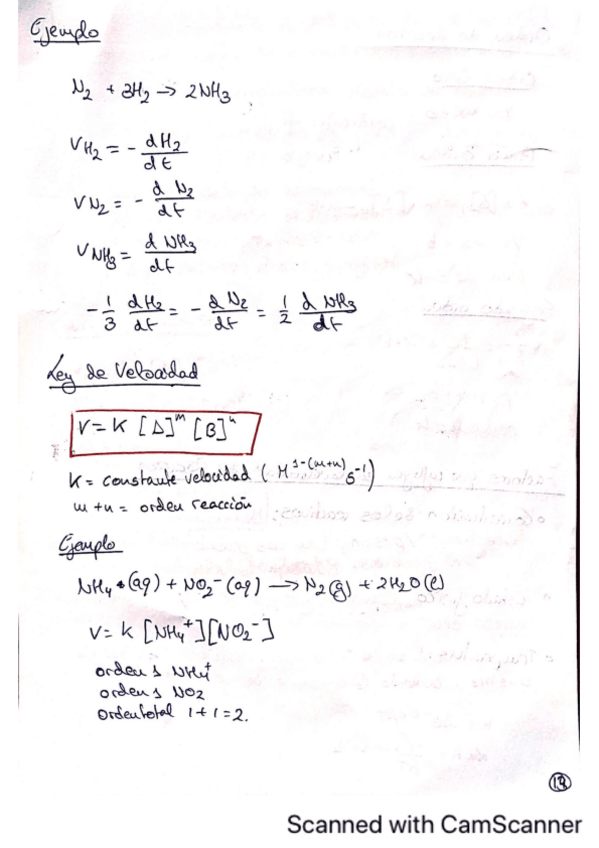 Ejemplo
N₂ + 3H₂ → 2NH₃
V H₂ = - dH₂/dt
V N₂ = - d N₂/dt
V NH₃ = d NH₃/dt
-1/3 dH₂/dt = - d N₂/dt = 1/2 d NH₃/dt
Ley de Velocidad
V = K [A]^m [B]^n
K = constante velocidad ( M^1-(m+n) s^-1)
m + n = orden reacción
Ejemplo
NH₄ + (aq) + NO₂⁻ (aq) → N₂(g) + 2H₂O(l)
V = k [NH₄⁺][NO₂⁻]
orden 1 NH₄⁺
orden 1 NO₂
Orden total 1 + 1 = 2.
Scanned with CamScanner